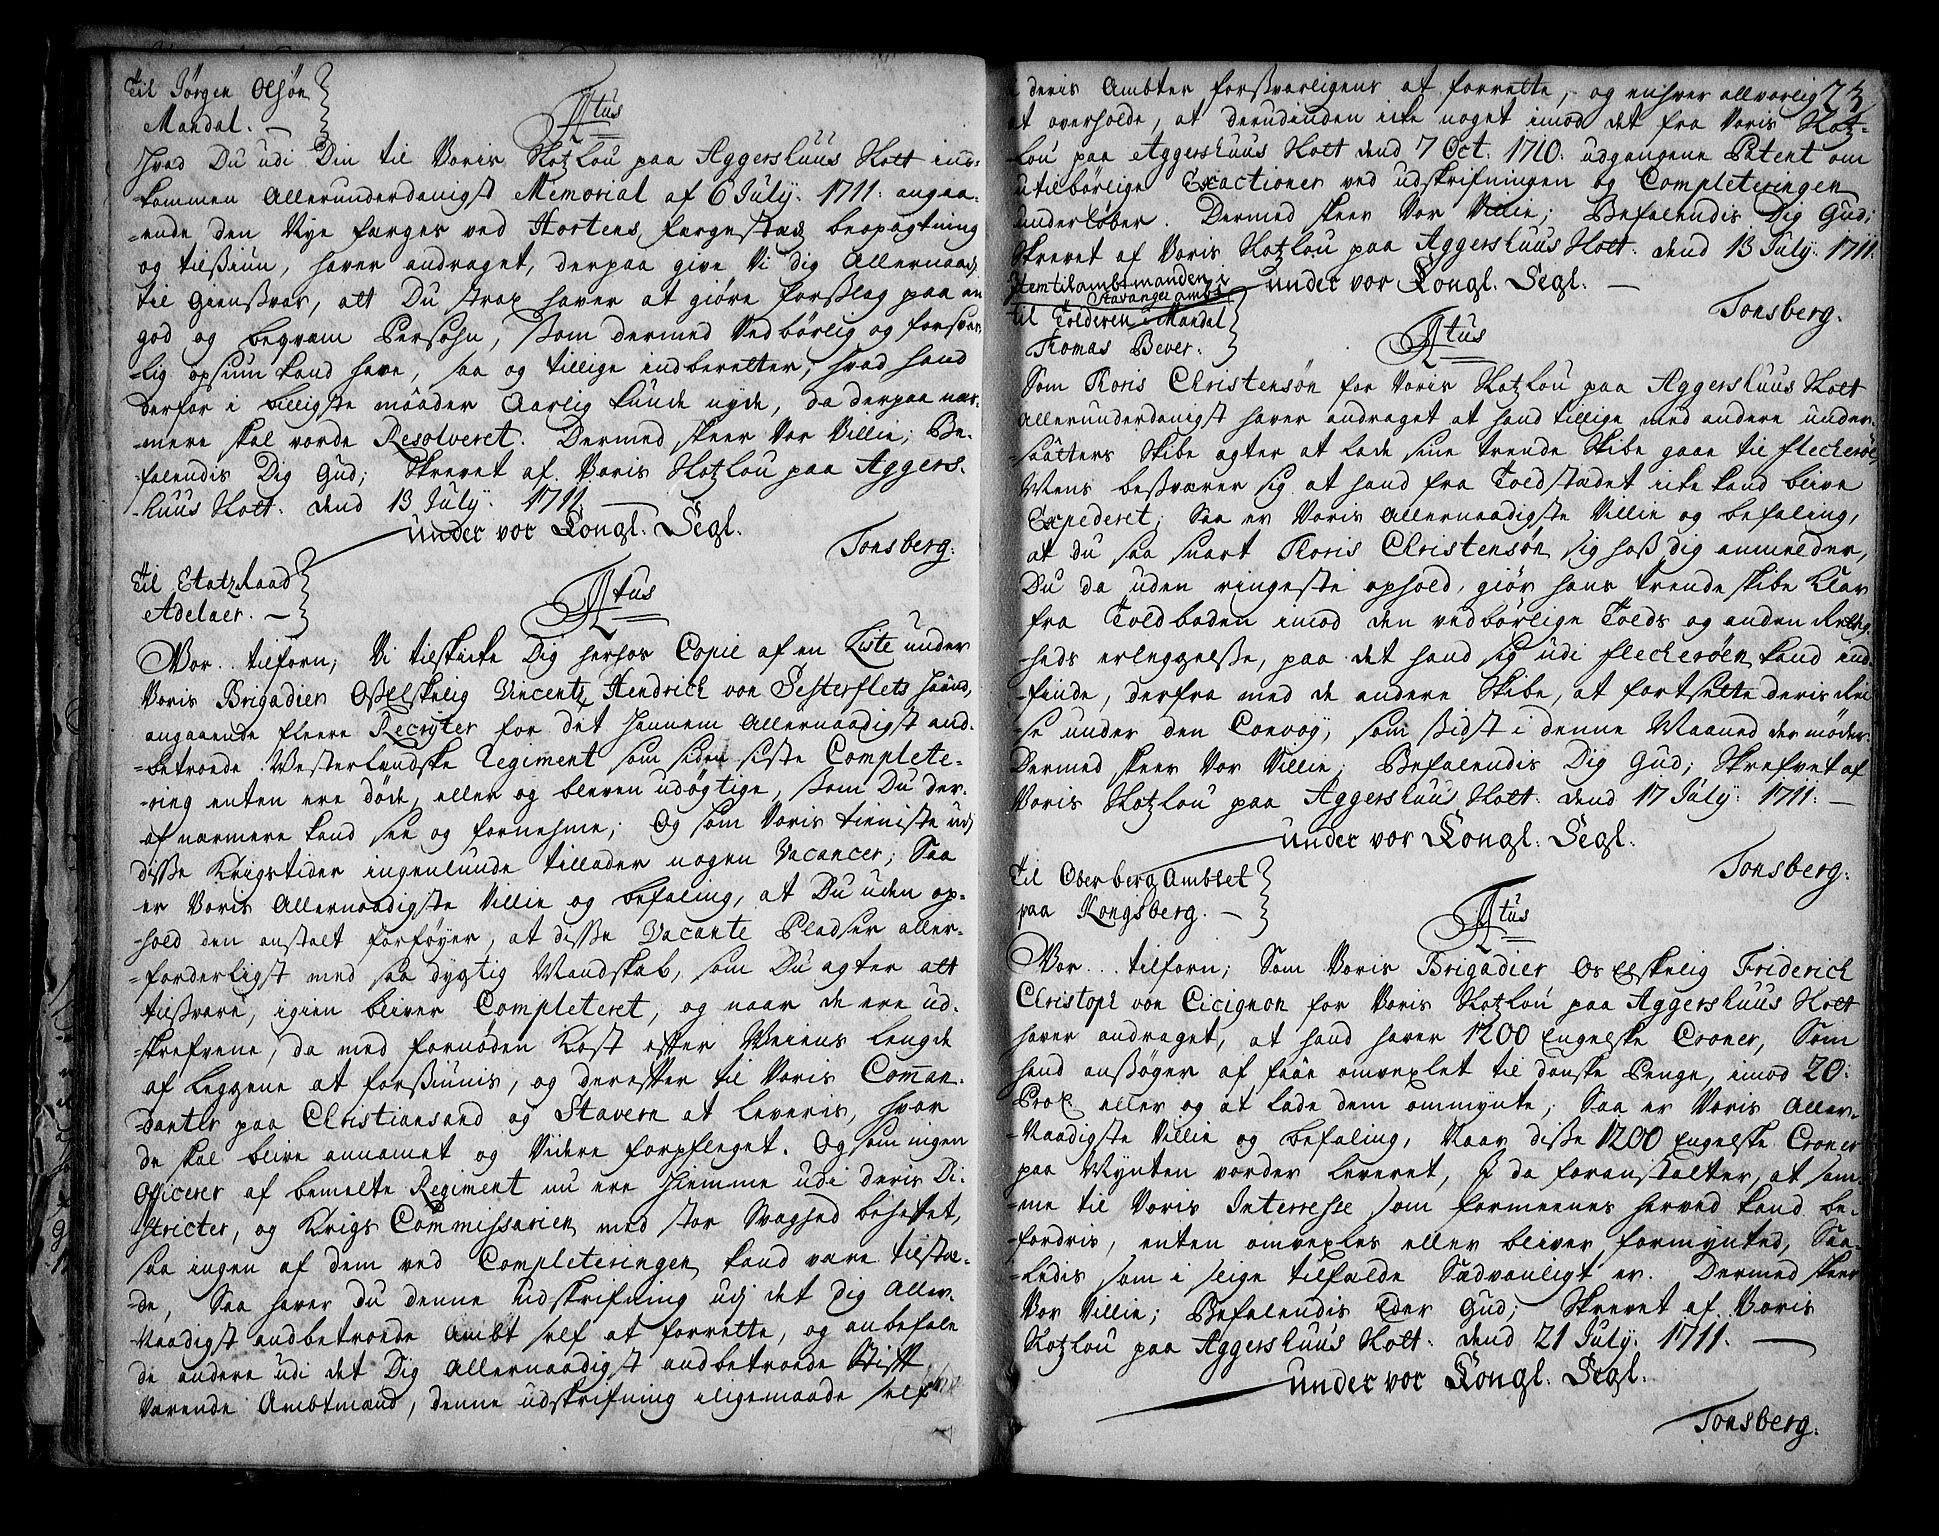 Til Jörgen Olsön
Mandal. —
Htus
Hvad Du udi Din til Voris Slotzlou paa Aggershuus Slott ind-
-kommen Allerunderdanigst Memorial af 6 July. 1711. angaa-
-ende den Nye farges ved Hortens fargestæd beopagtning
og tilssiun, haver andraget, derpaa give Vi dig Allernaad.
til Giensvar, att Du strax haver at giöre forslag paa en
god og beqvam Persohn, ssom dermed Vedbörlig og forsvar-
-lig opsiun kand have, saa og tillige indberetter, hvad hand
derfor i billigste maader Aarlig kunde nyde, da derpaa nær-
-mere skal vorde Resolveret. Dermed skeer Vor Villie; Be-
falendis Dig Gud; Skrevet af Voris Slotzlou paa Aggers-
huus Slott. dend 13 July. 1711. —
under vor Kongl. Segl.
Tonsberg.
Til Etatzraad
Adelaer. —
Htus
Vor.. tilforn; Vi tilskicke Dig herhos Copie af en Liste under
Voris Brigadier Oss Elskelig Vincentz Hendrich von Sesterflets haand,
angaaende fleere Recryter for det hannem Allernaadigst and-
-betroede Westerlendske Regiment som siden siste Complete-
-ring enten ere döde, eller og bleven udögtige, ssom Du der-
af nærmere kand see og fornehme; Og som Voris tieniste udj
disse Krigstider ingenlunde tillader nogen Vacancer; Saa
er Voris Allernaadigste Villie og befaling, at Du uden op-
-hold den anstalt forföyer, at disse Vacante Pladser aller-
-forderligst med saa dygtig Mandskab, som Du agter att
tilssvare, igien bliver Completeret, og naar de ere ud-
-skrefvene, da med fornöden Kost efter Veiens lengde
af Leggene at forssiunis, og derefter til Voris Coman-
-danter paa Christiansand og Stavern at leveris, hvor
de skal blive annamet og Videre forpfleget. Og som ingen
Officerer af bemelte Regiment nu ere hiemme udi deris Di-
stricter, og Krigs Commissarien med stor Svaghed behefftet,
saa ingen af dem ved Completeringen kand være tilstæ-
-de, Saa haver Du denne udskrifning udj det Dig Aller-
Naadigst andbetroede Ambt self at forrette, og anbefale
de andere udi det Dig Allernaadigst andbetroede Stift
Værende Ambtmænd, denne udskrifning iligemaade self
i deris Ambter forssvarligens at forrette, og enhver allvorlig 73
at overholde, at derudinden icke noget imod det fra Voris Slotz-
lou paa Aggershuus Slott dend 7 Oct. 1710. udgangene Patent om
utilbörlige Exactioner ved udskrifningen og Completeringen
underlöber. Dermed skeer Vor Villie; Befalendis Dig Gud;
Skrevet af Voris Slotzlou paa Aggershuus Slott. dend 13 July. 1711.
under vor Kongl. Segl. —
Tonsberg.
Item til ambtmanden i
Stavanger ambt
Til Tolderen i Mandal
Thomas Bever.
Htus
Som Thoris Christensön for Voris Slotzlou paa Aggershuus Slott
Allerunderdanigst haver andraget at hand tillige med andere under-
-saatters Skibe agter at lade sine trende Skibe gaae til fleckeröe,
Mens besværer sig at hand fra Toldstædet icke kand blive
Expederet; Saa er Voris Allernaadigste Villie og befaling,
at du saa snart Thoris Christensön sig hoss dig anmelder,
Du da uden ringeste ophold, giör hans trende skibe klar
fra Toldboden imod den vedbörlige Tolds og anden Rettig-
-heds erleggelsse, paa det hand sig udi fleckeröen kand ind-
-finde, derfra med de andere Skibe, at fortsette deris Rei-
-se under den Convoy, som ssidst i denne Maaned der möder.
Dermed skeer Vor Villie; Befalendis Dig Gud; Skrefvet af
Voris Slotzlou paa Aggershuus Slott. dend 17 July. 1711. —
under vor Kongl. Segl.
Tonsberg.
Til Oberberg Ambtet
paa Kongsberg. —
Htus
Vor... tilforn; Som Voris Brigadier Os Elskelig Friderich
Christoph von Cicignon for Voris Slotzlou paa Aggershuus Slott
haver andraget, at hand haver 1200 Engelske Croner, Som
hand anssöger af faae omvexlet til danske Penge, imod 20.
Proc. eller og at lade dem ommynte; Saa er Voris Aller-
-Naadigste Villie og befaling, Naar disse 1200 Engelske Croner
paa Mynten vorder leveret, I da foranstalter, at sam-
-me til Voris Interesse som formeenes herved kand be-
-fordris, enten omvexles eller bliver formynted, Saa-
-ledis som i slige tilfælde Sædvanligt er. Dermed skeer
Vor Villie; Befalendis Eder Gud; Skrevet af Voris
Slotzlou paa Aggershuus Slott. dend 21 July. 1711. —
under vor Kongl. Segl.
Tonsberg.